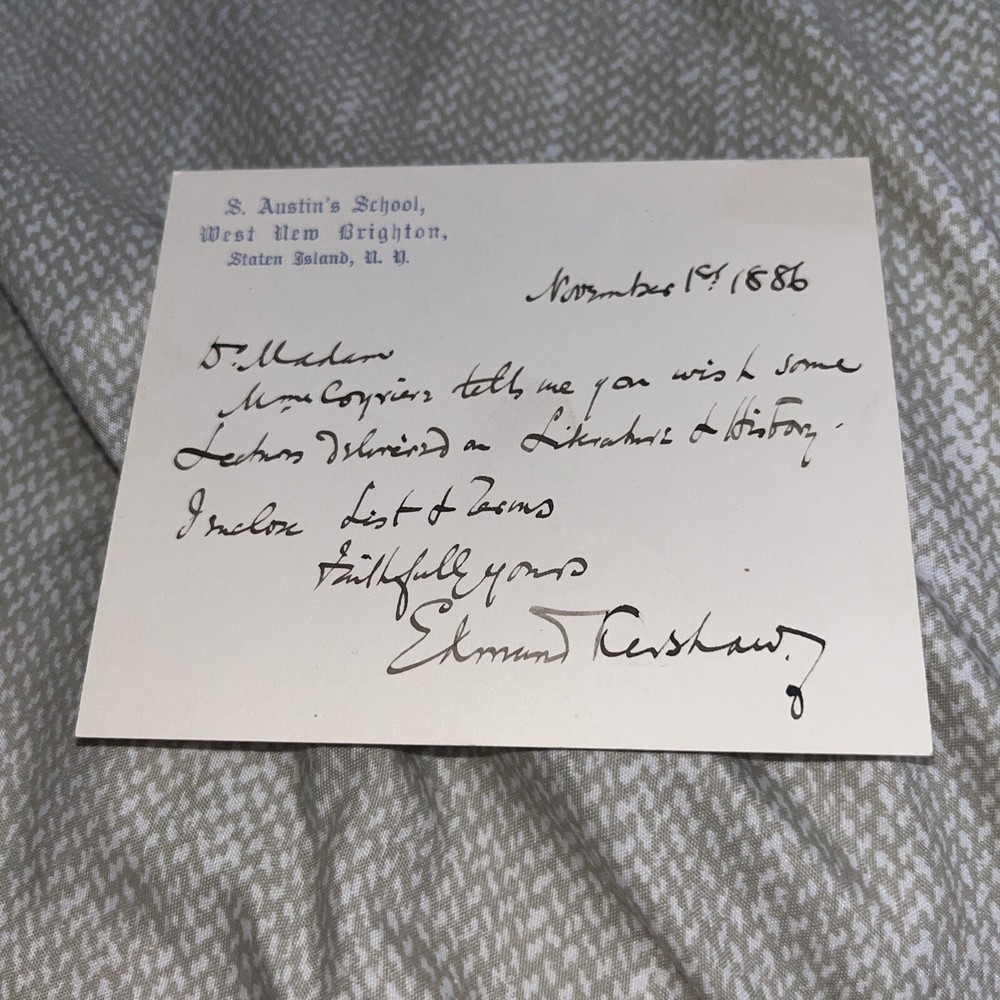 S. Austin's School,
West New Brighton,
Staten Island, N. Y.
November 1st 1886
Dr. Madam
Mme tells me you wish some
Lectures delivered on Literature & History.
I enclose List & Terms
Faithfully yours
Edmund Kershaw.